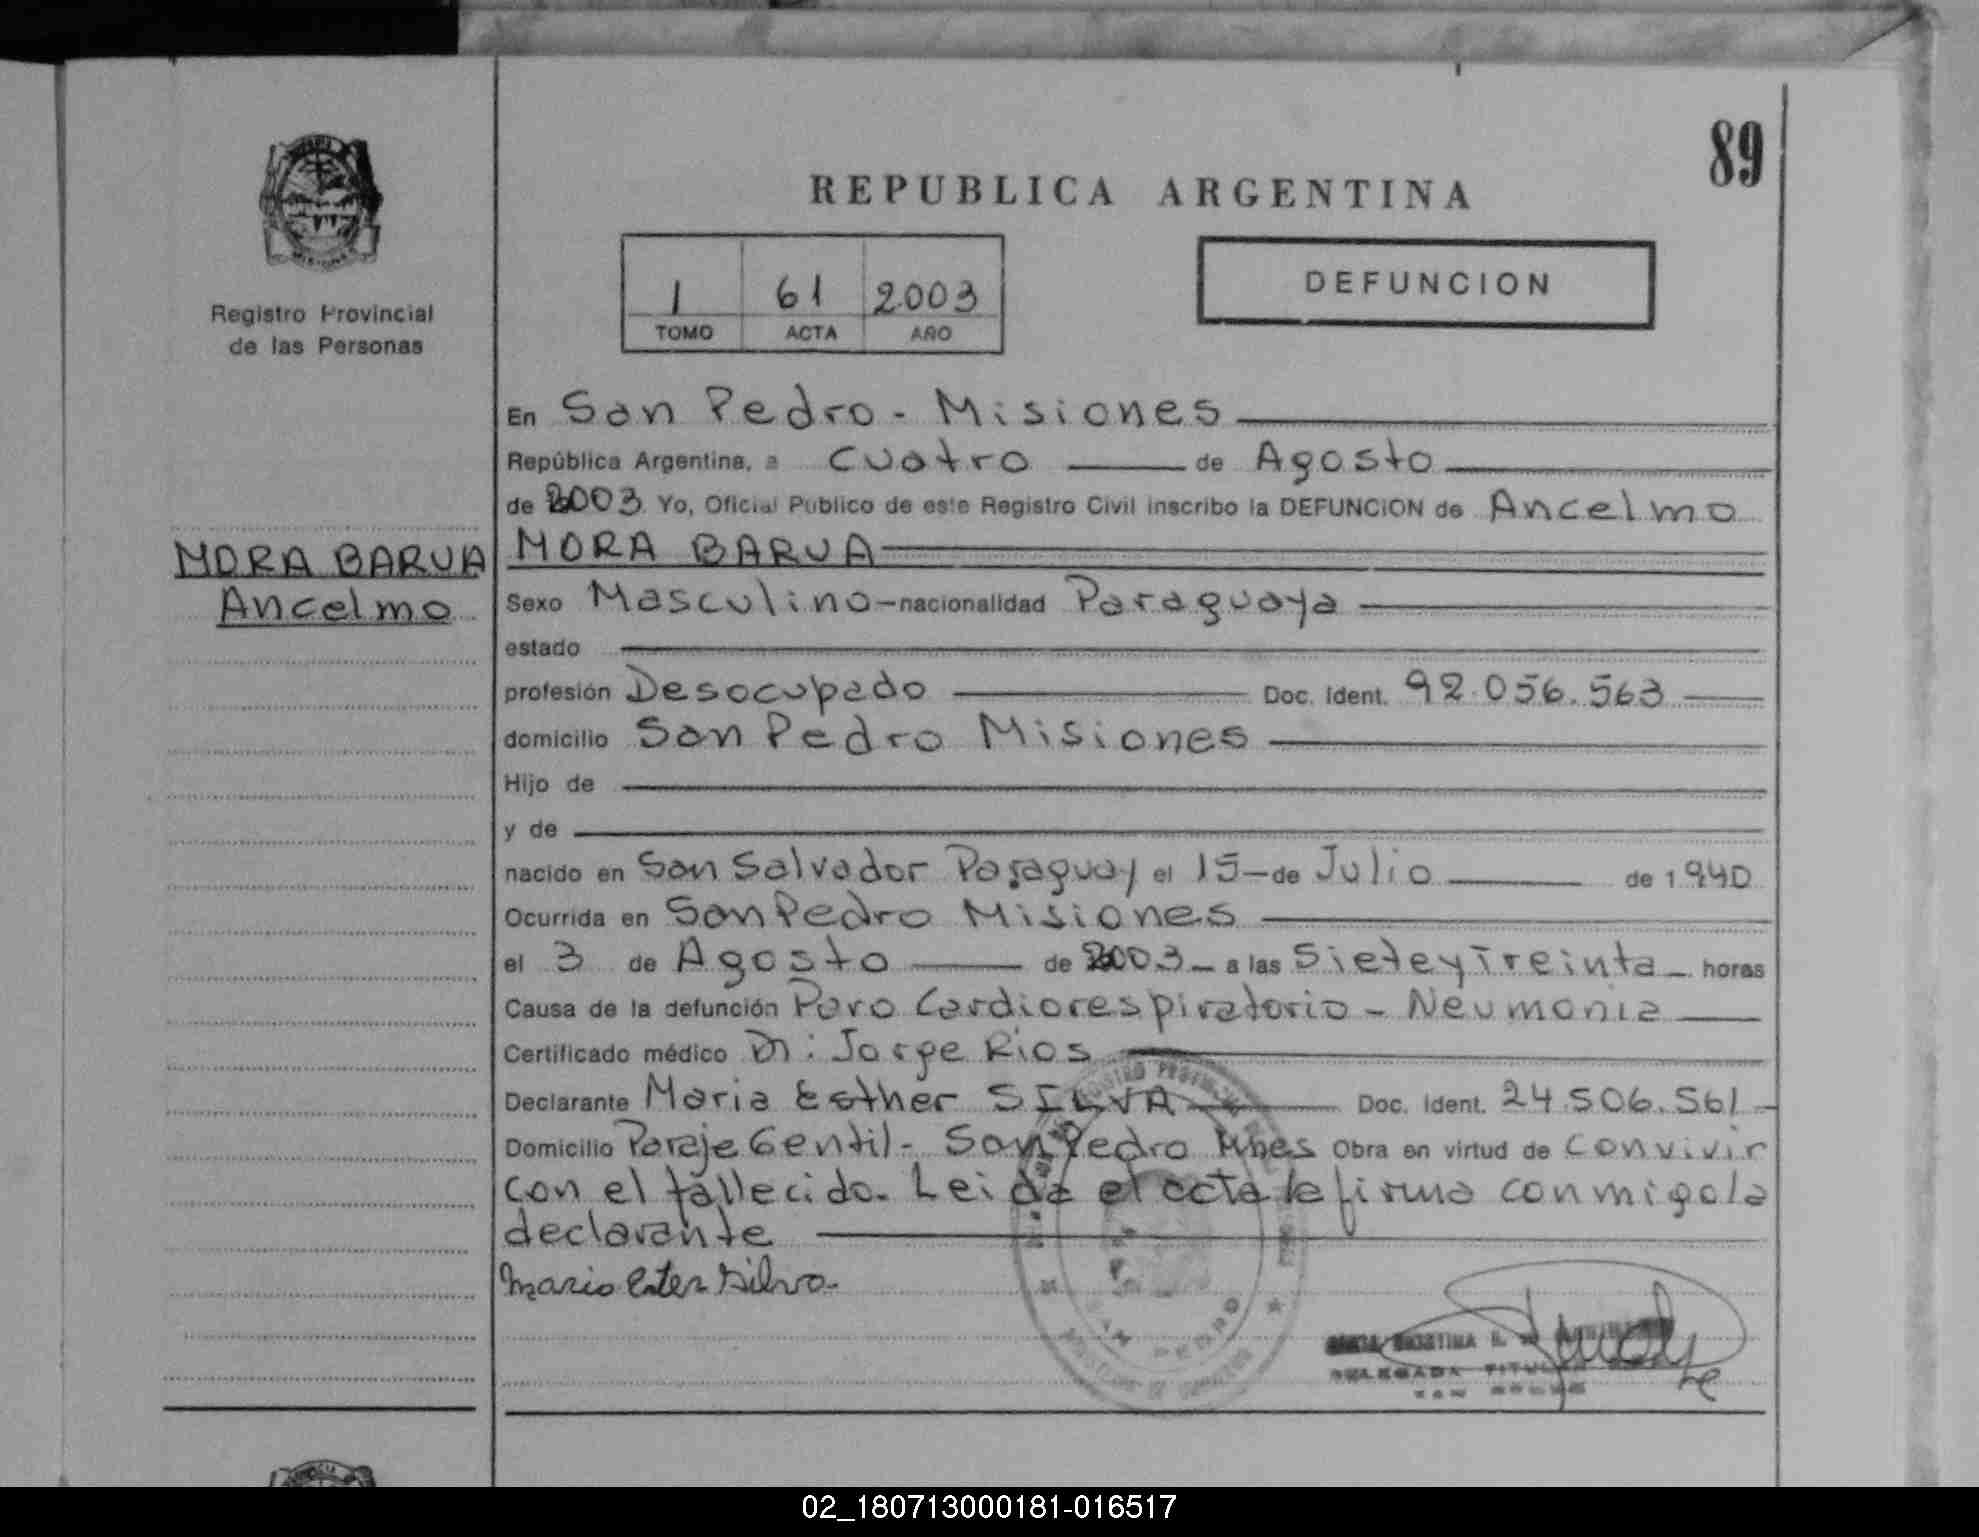 89
REPUBLICA ARGENTINA
1 61 2003
TOMO ACTA AÑO
DEFUNCION
Registro Provincial
de las Personas
MORA BARUA
Ancelmo
En San Pedro - Misiones
República Argentina, a cuatro de Agosto
de 2003 Yo, Oficial Publico de este Registro Civil inscribo la DEFUNCION de Ancelmo
MORA BARUA
Sexo Masculino - nacionalidad Paraguaya
estado
profesión Desocupado Doc. Ident. 92.056.563
domicilio San Pedro Misiones
Hijo de
y de
nacido en San Salvador Paraguay el 15 - de Julio de 1940
Ocurrida en San Pedro Misiones
el 3 de Agosto de 2003 - a las Siete y Treinta - horas
Causa de la defunción Paro Cardiorespiratorio - Neumonia
Certificado médico Dr: Jorge Rios
Declarante Maria Esther SILVA Doc. Ident. 24.506.561 -
Domicilio Paraje Gentil - San Pedro Mnes Obra en virtud de convivir
con el fallecido. Leida el acta la firma conmigo la
declarante
Maria Ester Silva.
SAN PEDRO
DELEGADA TITULAR
SAN PEDRO
02_180713000181-016517